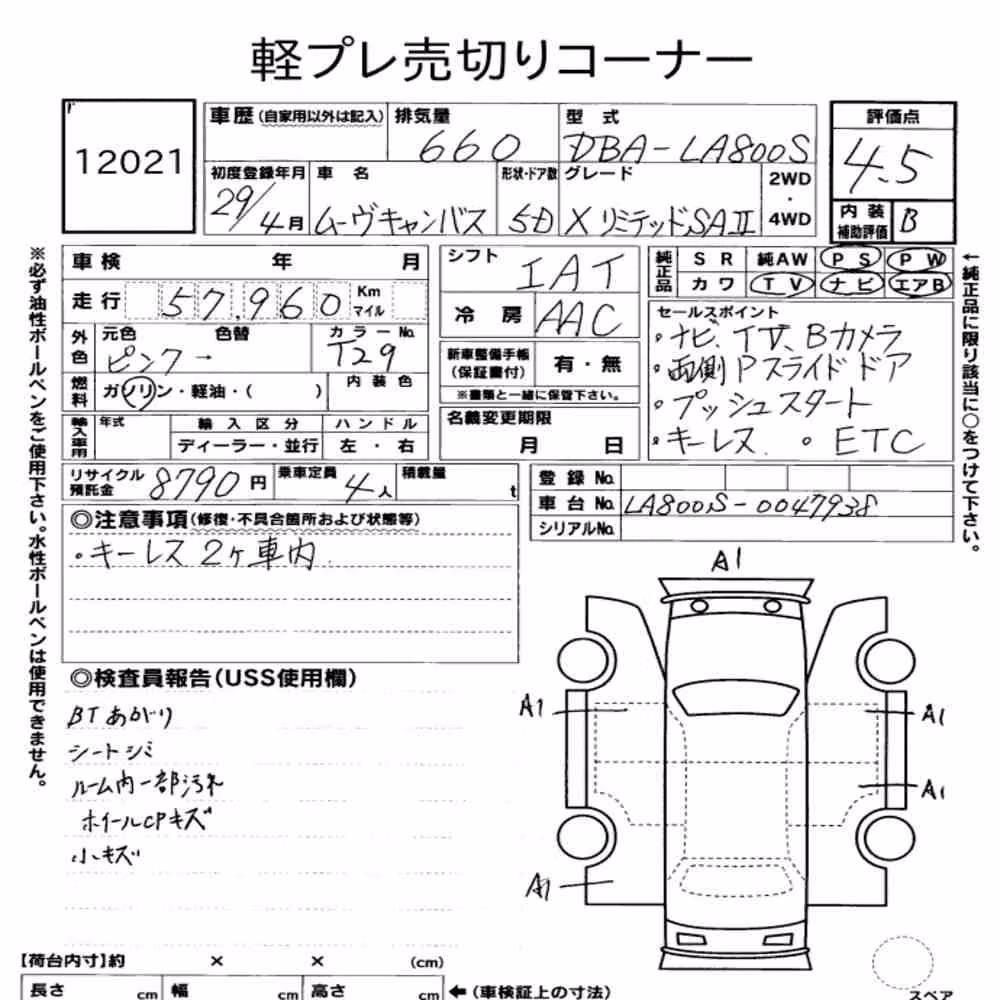 軽プレ売切りコーナー
12021
車歴 (自家用以外は記入) 排気量 型式 評価点
660 DBA-LA800S 4.5
初度登録年月 車名 形状・ドア数 グレード 2WD・4WD
29/4月 ムーヴキャンバス 5D XリミテッドSAⅡ
内装補助評価 B
車検 年 月
走行 57,960 Km マイル
外色 元色 色替 カラーNo.
ピンク→ T29
燃料 ガソリン・軽油・( ) 内装色
輸入車用 年式 輸入区分 ハンドル
ディーラー・並行 左・右
シフト IAT
冷房 AAC
新車整備手帳(保証書付) 有・無
※書類と一緒に保管下さい。
名義変更期限
月 日
純正品 SR 純AW PS PW
カワ TV ナビ エアB
セールスポイント
・ナビ、TV、Bカメラ
・両側Pスライドドア
・プッシュスタート
・キーレス 。ETC
リサイクル預託金 8790円 乗車定員 4人 積載量 t
登録No.
車台No. LA800S-0047938
シリアルNo.
◎注意事項(修復・不具合箇所および状態等)
・キーレス2ヶ車内
◎検査員報告(USS使用欄)
BTあがり
シートシミ
ルーム内一部汚れ
ホイールCPキズ
小キズ
A1
A1
A1
A1
A1
スペア
【荷台内寸】約 × × (cm)
長さ cm 幅 cm 高さ cm ←(車検証上の寸法)
※必ず油性ボールペンをご使用下さい。水性ボールペンは使用できません。
←純正品に限り該当に○をつけて下さい。